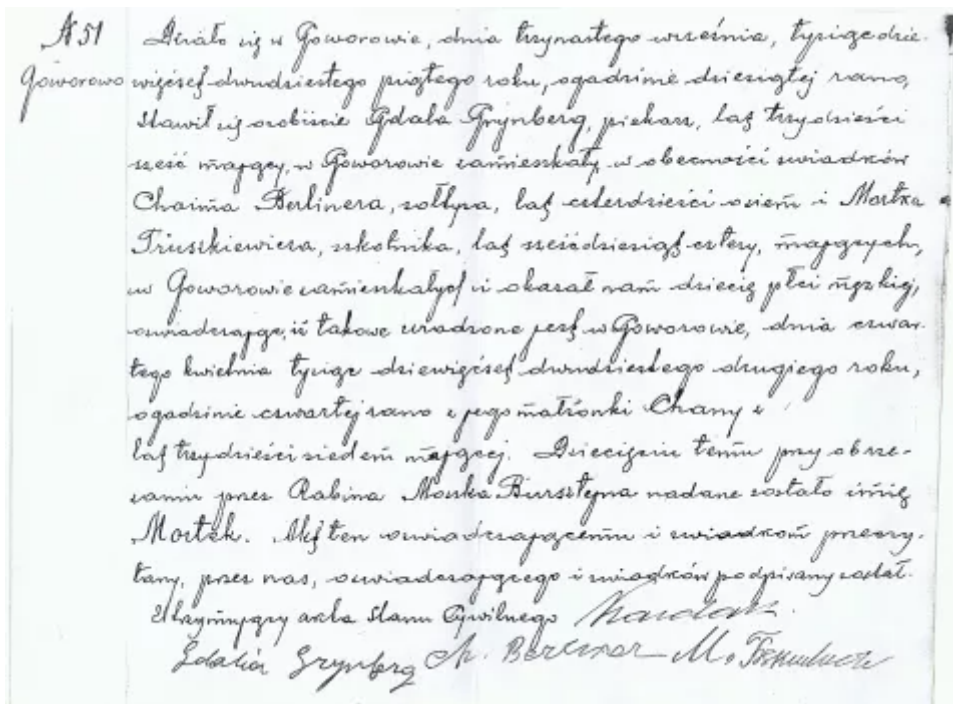 N 51
Goworowo
Działo się w Goworowie, dnia trzynastego września, tysiąc dzie-
więćset dwudziestego piątego roku, o godzinie dziesiątej rano,
stawił się osobiście Gdala Grynberg, piekarz, lat trzydzieści
sześć mający, w Goworowie zamieszkały, w obecności świadków
Chaima Berlinera, sołtysa, lat czterdzieści osiem i Mostka
Truszkiewicza, szkolnika, lat sześćdziesiąt cztery, mających,
w Goworowie zamieszkałych i okazał nam dziecię płci męzkiej,
oświadczając, iż takowe urodzone jest w Goworowie, dnia czwar-
tego kwietnia tysiąc dziewięćset dwudziestego drugiego roku,
o godzinie czwartej rano z jego małżonki Chany z
lat trzydzieści siedem mającej. Dziecięciu temu przy obrze-
zaniu przez Rabina Moszka Bursztejna nadane zostało imię
Mortek. Akt ten oświadczającemu i świadkom przeczy-
tany, przez nas, oświadczającego i świadków podpisany został.
Utrzymujący akta Stanu Cywilnego
Gdalia Grynberg Ch. Berliner M.